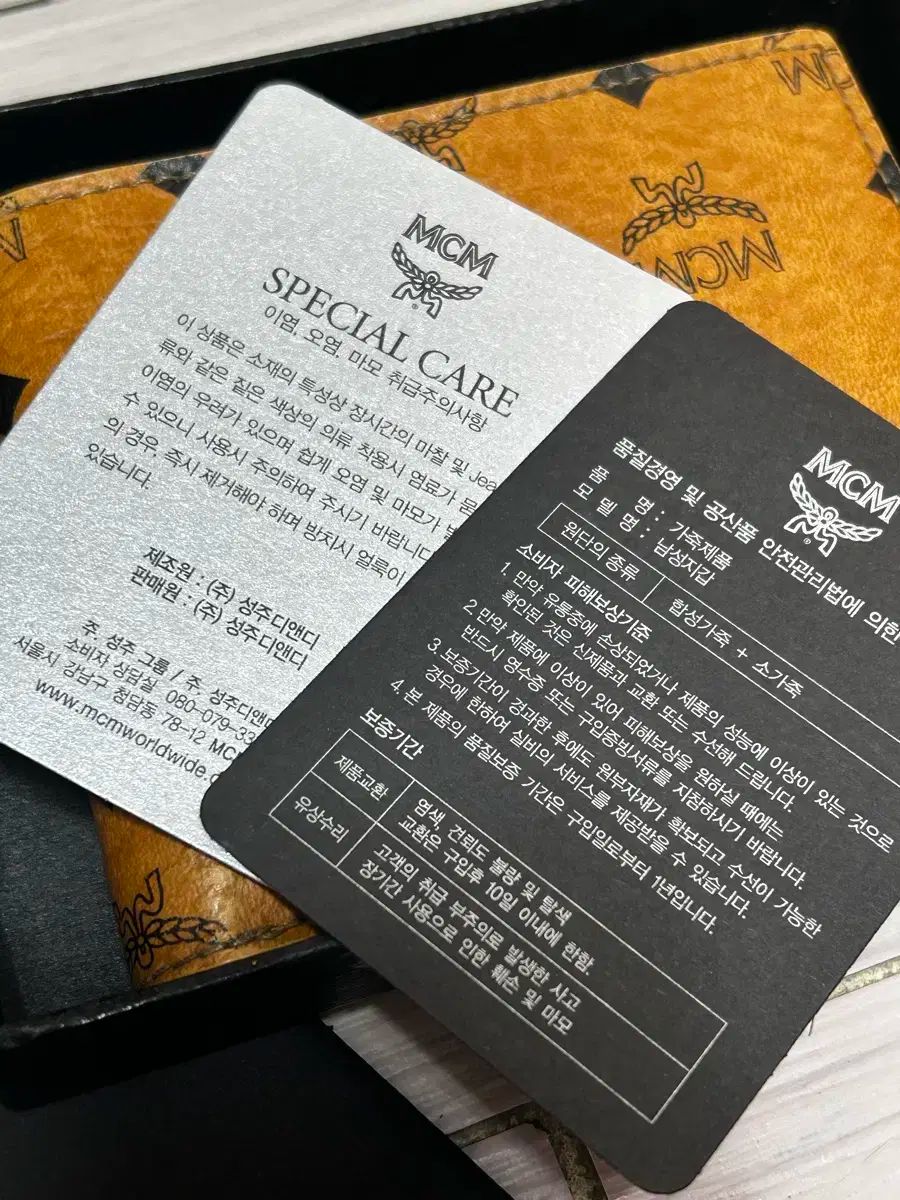 MCM
SPECIAL CARE
이염, 오염, 마모 취급주의사항
이 상품은 소재의 특성상 장시간의 마찰 및 Jea
류와 같은 짙은 색상의 의류 착용시 염료가 묻
이염의 우려가 있으며 쉽게 오염 및 마모가 발
수 있으니 사용시 주의하여 주시기 바랍니다
의 경우, 즉시 제거해야 하며 방치시 얼룩이
있습니다.
제조원 : (주) 성주디앤디
판매원 : (주) 성주디앤디
주. 성주 그룹 / 주. 성주디앤디
소비자 상담실 080-079-33
서울시 강남구 청담동 78-12 MC
www.mcmworldwide.c
MCM
품질경영 및 공산품 안전관리법에 의한
품 명 : 가죽제품
모 델 명 : 남성지갑
원단의 종류 합성가죽 + 소가죽
소비자 피해보상기준
1. 만약 유통중에 손상되었거나 제품의 성능에 이상이 있는 것으로
확인된 것은 신제품과 교환 또는 수선해 드립니다.
2 만약 제품에 이상이 있어 피해보상을 원하실 때에는
반드시 영수증 또는 구입증빙서류를 지참하시기 바랍니다.
3. 보증기간이 경과한 후에도 원부자재가 확보되고 수선이 가능한
경우에 한하여 실비의 서비스를 제공받을 수 있습니다.
4. 본 제품의 품질보증 기간은 구입일로부터 1년입니다.
보증기간
제품교환 염색, 견뢰도 불량 및 탈색
교환은 구입후 10일 이내에 한함.
유상수리 고객의 취급 부주의로 발생한 사고
장기간 사용으로 인한 훼손 및 마모
MCM
MCM